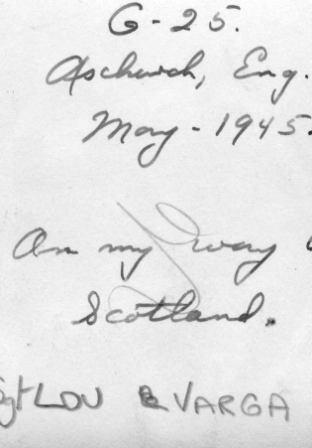 G-25.
Aschurch, Eng.
May-1945.
On my way
Scotland.
Sgt LOU VARGA